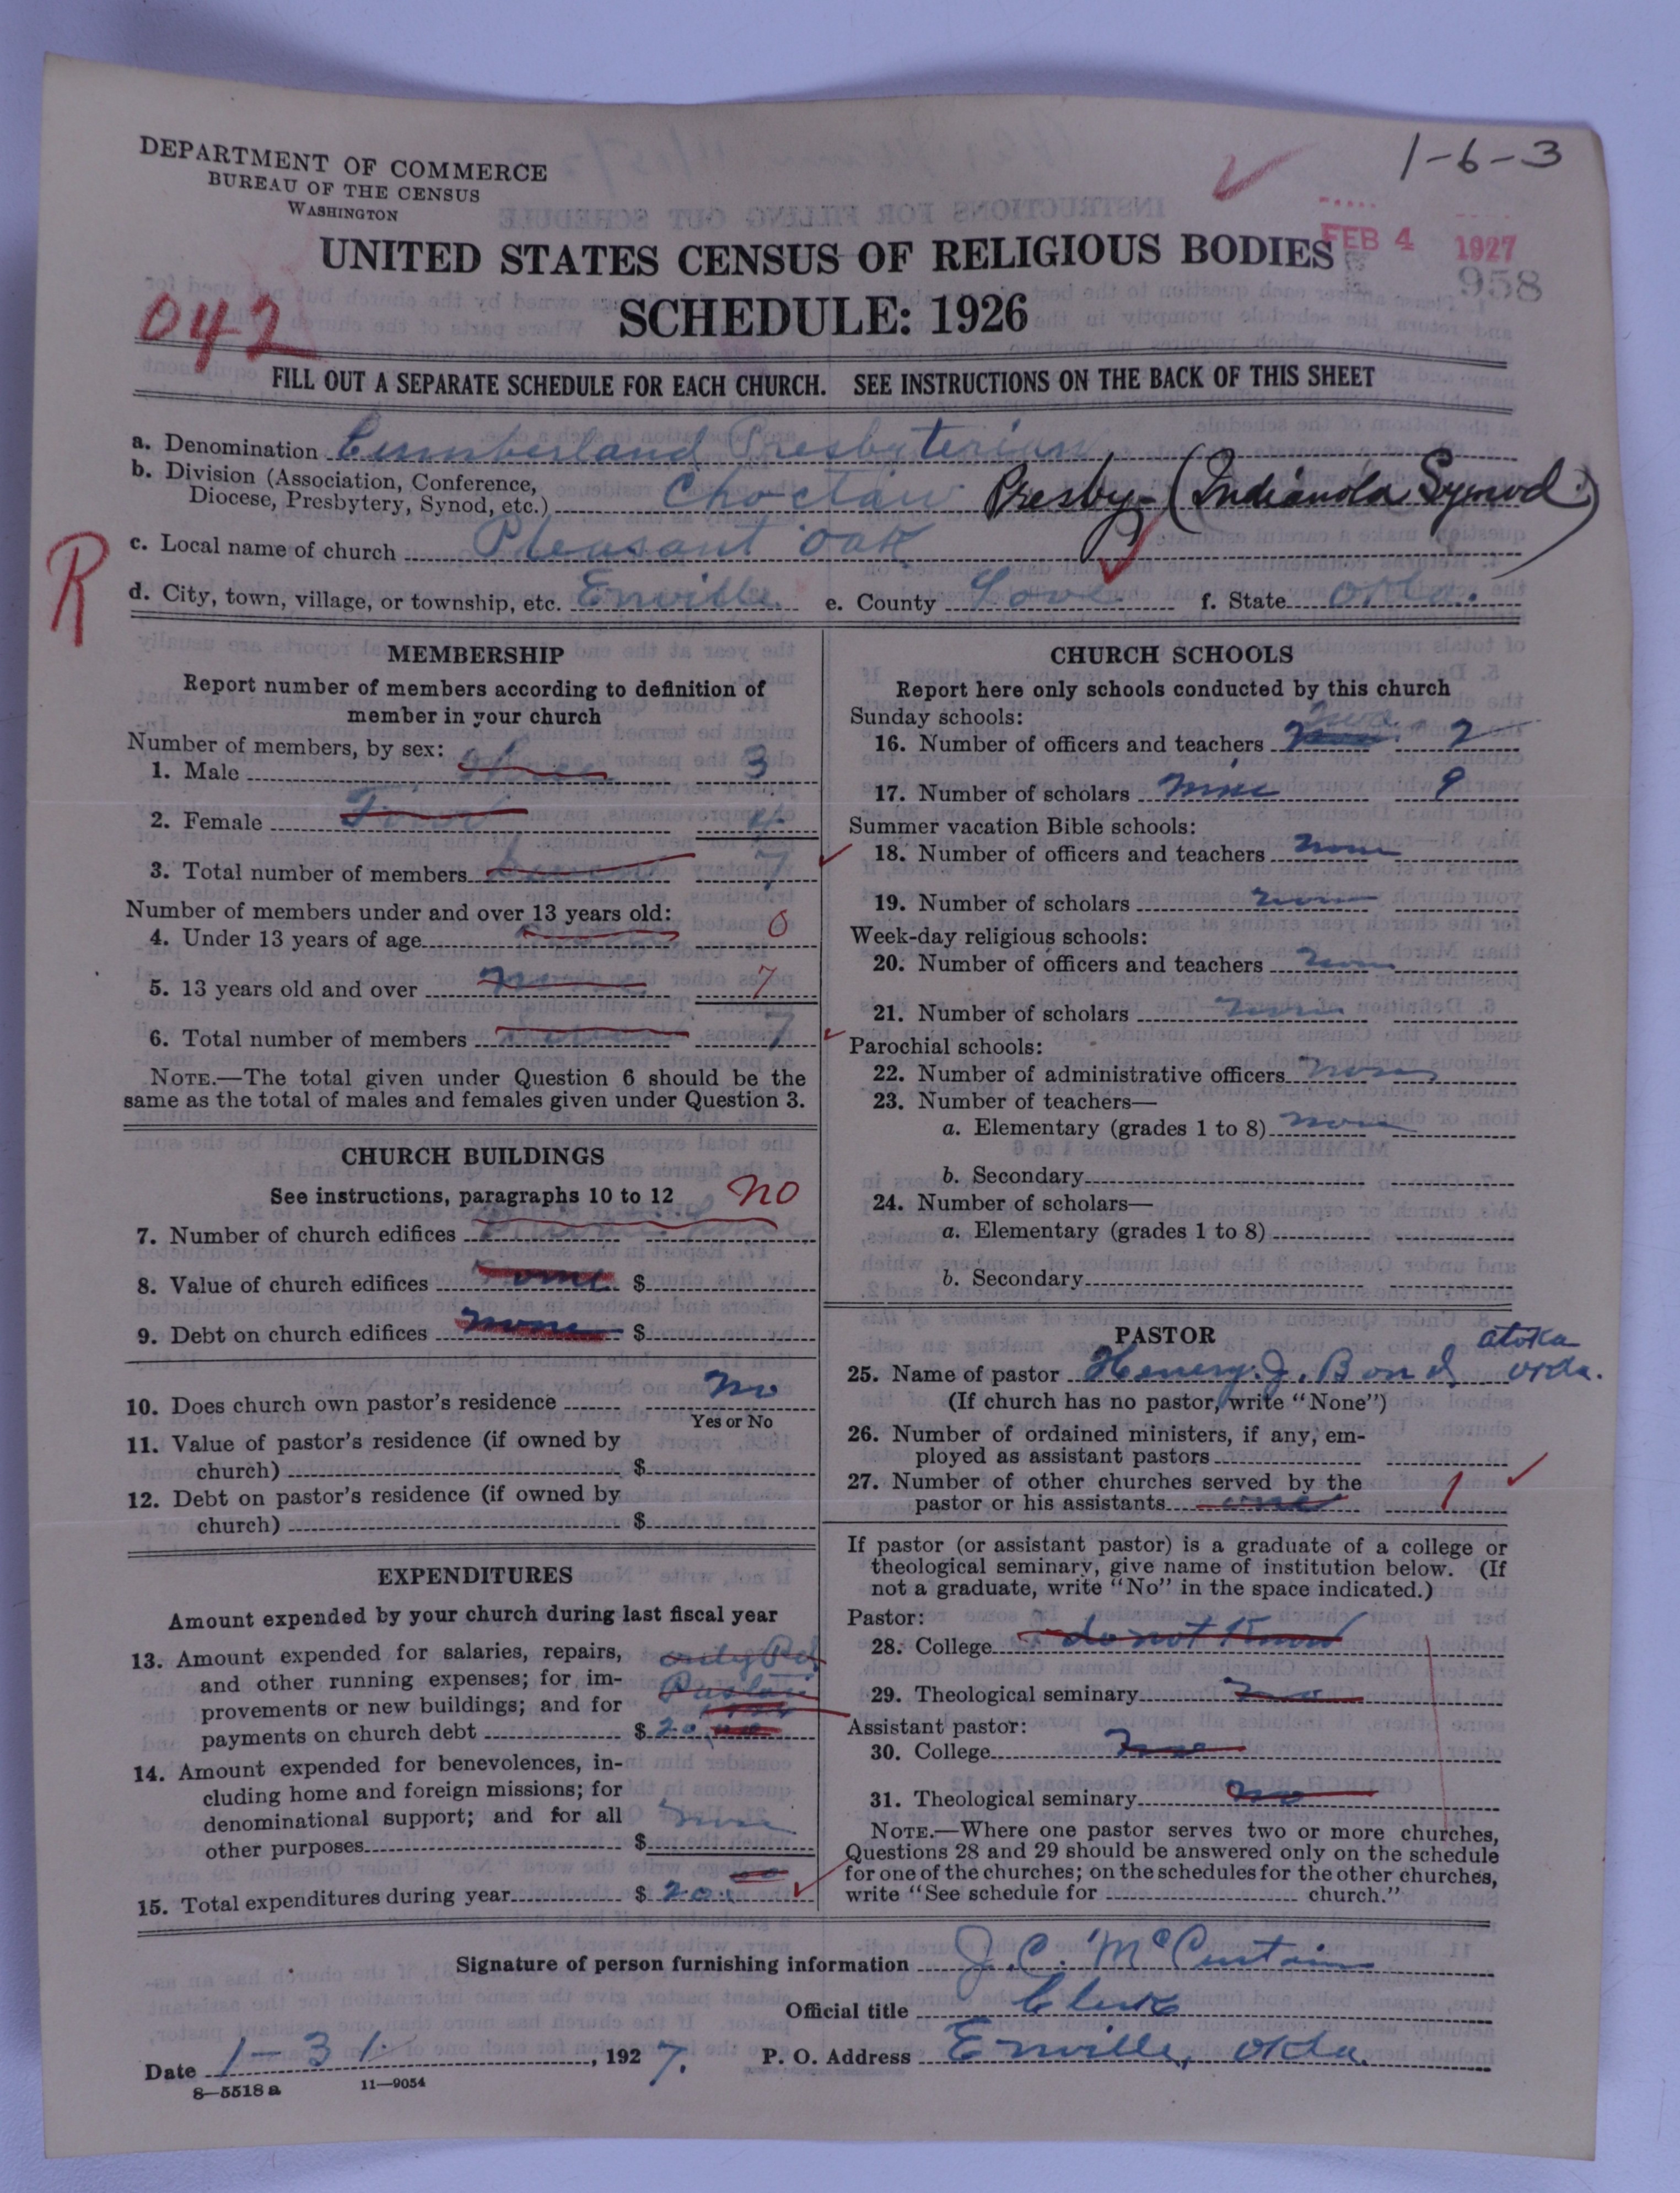 1-6-3
DEPARTMENT OF COMMERCE
BUREAU OF THE CENSUS
WASHINGTON
FEB 4 1927
958
UNITED STATES CENSUS OF RELIGIOUS BODIES
SCHEDULE: 1926
042
FILL OUT A SEPARATE SCHEDULE FOR EACH CHURCH. SEE INSTRUCTIONS ON THE BACK OF THIS SHEET
a. Denomination Cumberland Presbyterian
b. Division (Association, Conference,
Diocese, Presbytery, Synod, etc.) Choctaw Presby- (Indianola Synod)
R
c. Local name of church Pleasant Oak
d. City, town, village, or township, etc. Enville e. County Love f. State Okla.
MEMBERSHIP
Report number of members according to definition of
member in your church
Number of members, by sex:
1. Male three 3
2. Female Four 4
3. Total number of members seven 7
Number of members under and over 13 years old:
4. Under 13 years of age 0
5. 13 years old and over none 7
6. Total number of members 7
NOTE.—The total given under Question 6 should be the
same as the total of males and females given under Question 3.
CHURCH BUILDINGS
See instructions, paragraphs 10 to 12 no
7. Number of church edifices
8. Value of church edifices none $
9. Debt on church edifices none $
10. Does church own pastor's residence no
Yes or No
11. Value of pastor's residence (if owned by
church) $
12. Debt on pastor's residence (if owned by
church) $
EXPENDITURES
Amount expended by your church during last fiscal year
13. Amount expended for salaries, repairs,
and other running expenses; for im-
provements or new buildings; and for
payments on church debt $ 20
14. Amount expended for benevolences, in-
cluding home and foreign missions; for
denominational support; and for all
other purposes $ none
15. Total expenditures during year $ 20
CHURCH SCHOOLS
Report here only schools conducted by this church
Sunday schools:
16. Number of officers and teachers two 2
17. Number of scholars nine 9
Summer vacation Bible schools:
18. Number of officers and teachers none
19. Number of scholars none
Week-day religious schools:
20. Number of officers and teachers none
21. Number of scholars none
Parochial schools:
22. Number of administrative officers none
23. Number of teachers—
a. Elementary (grades 1 to 8) none
b. Secondary
24. Number of scholars—
a. Elementary (grades 1 to 8)
b. Secondary
PASTOR
25. Name of pastor Henery. J. Bond, atoka okla.
(If church has no pastor, write "None")
26. Number of ordained ministers, if any, em-
ployed as assistant pastors
27. Number of other churches served by the
pastor or his assistants one 1
If pastor (or assistant pastor) is a graduate of a college or
theological seminary, give name of institution below. (If
not a graduate, write "No" in the space indicated.)
Pastor:
28. College do not Know
29. Theological seminary no
Assistant pastor:
30. College no
31. Theological seminary no
NOTE.—Where one pastor serves two or more churches,
Questions 28 and 29 should be answered only on the schedule
for one of the churches; on the schedules for the other churches,
write "See schedule for church."
Signature of person furnishing information J. C. McCurtain
Official title Clerk
Date 1-31. , 1927. P. O. Address Enville, Okla.
8—5518 a 11—9054